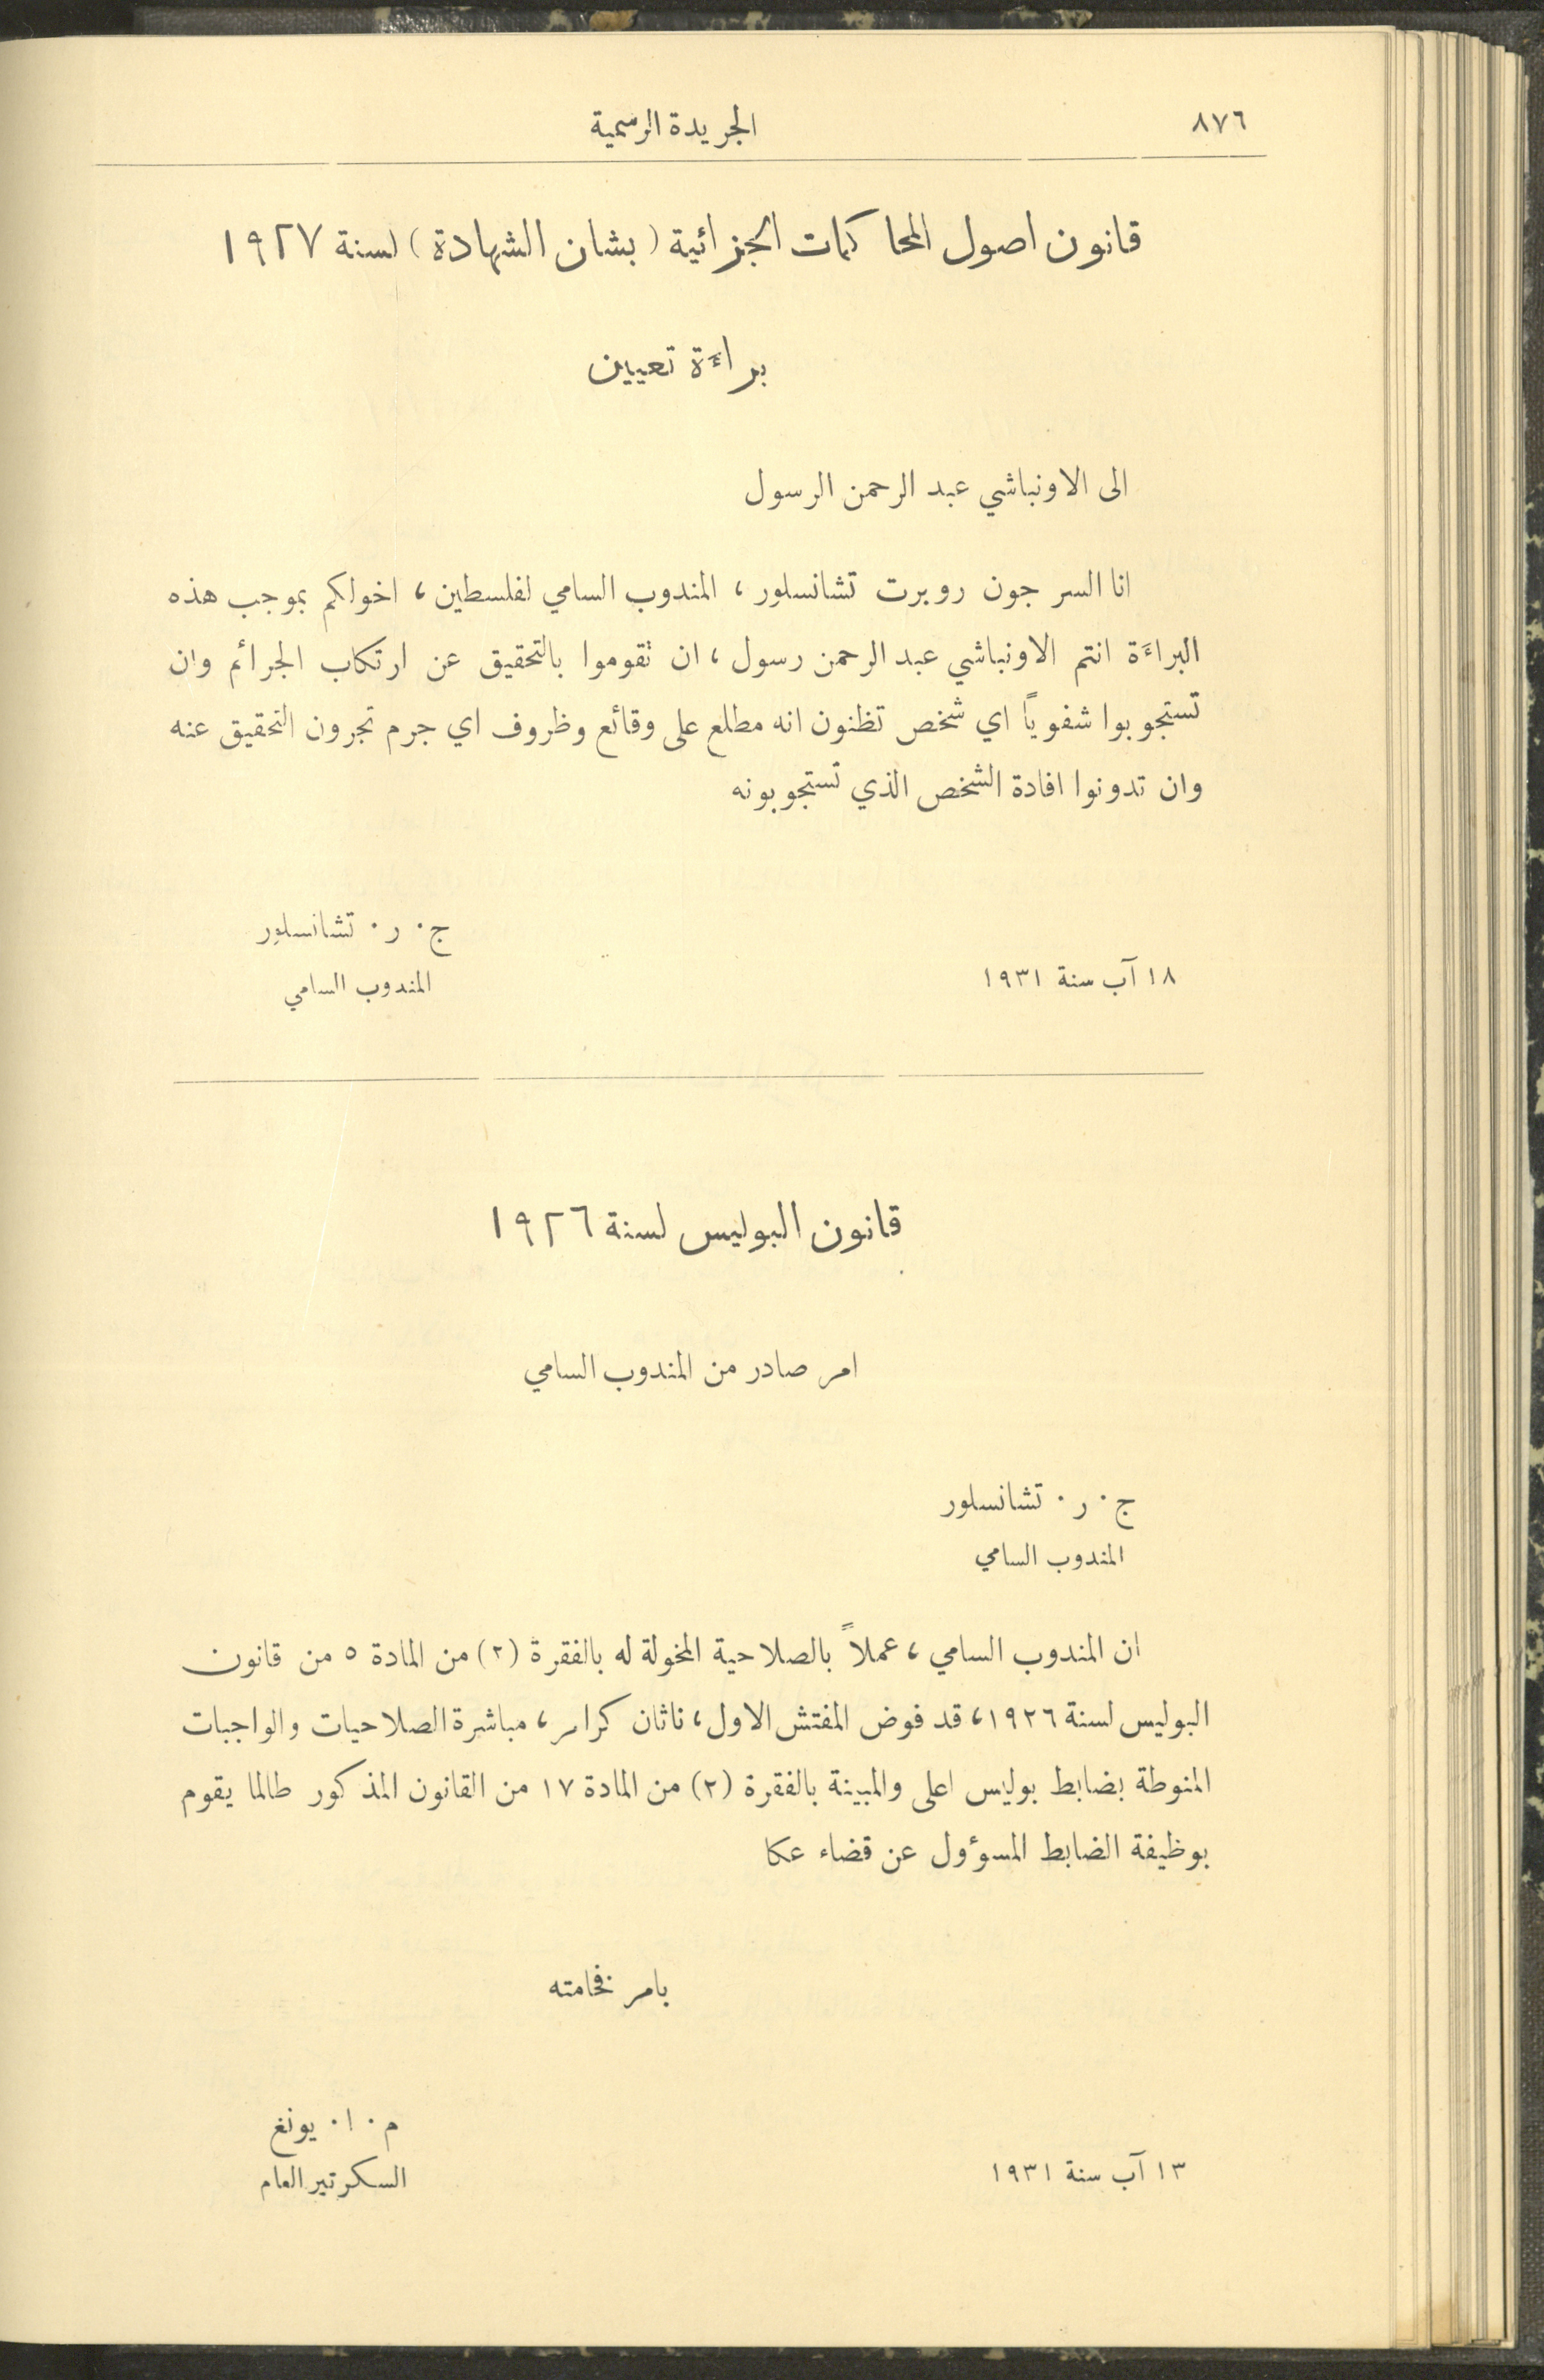 ٨٧٦
الجريدة الرسمية
قانون اصول المحاكمات الجزائية (بشان الشهادة) لسنة ١٩٢٧
براءَة تعيين
الى الاونباشي عبد الرحمن الرسول
انا السر جون روبرت تشانسلور، المندوب السامي لفلسطين، اخولكم بموجب هذه
البراءَة انتم الاونباشي عبد الرحمن رسول، ان تقوموا بالتحقيق عن ارتكاب الجرائم وان
تستجوبوا شفوياً اي شخص تظنون انه مطلع على وقائع وظروف اي جرم تجرون التحقيق عنه
وان تدونوا افادة الشخص الذي تستجوبونه
ج. ر. تشانسلور
المندوب السامي
١٨ آب سنة ١٩٣١
قانون البوليس لسنة ١٩٢٦
امر صادر من المندوب السامي
ج. ر. تشانسلور
المندوب السامي
ان المندوب السامي، عملاً بالصلاحية المخولة له بالفقرة (٢) من المادة ٥ من قانون
البوليس لسنة ١٩٢٦، قد فوض المفتش الاول، ناثان كرامر، مباشرة الصلاحيات والواجبات
المنوطة بضابط بوليس اعلى والمبينة بالفقرة (٢) من المادة ١٧ من القانون المذكور طالما يقوم
بوظيفة الضابط المسوؤل عن قضاء عكا
بامر فخامته
م. ا. يونغ
السكرتير العام
١٣ آب سنة ١٩٣١